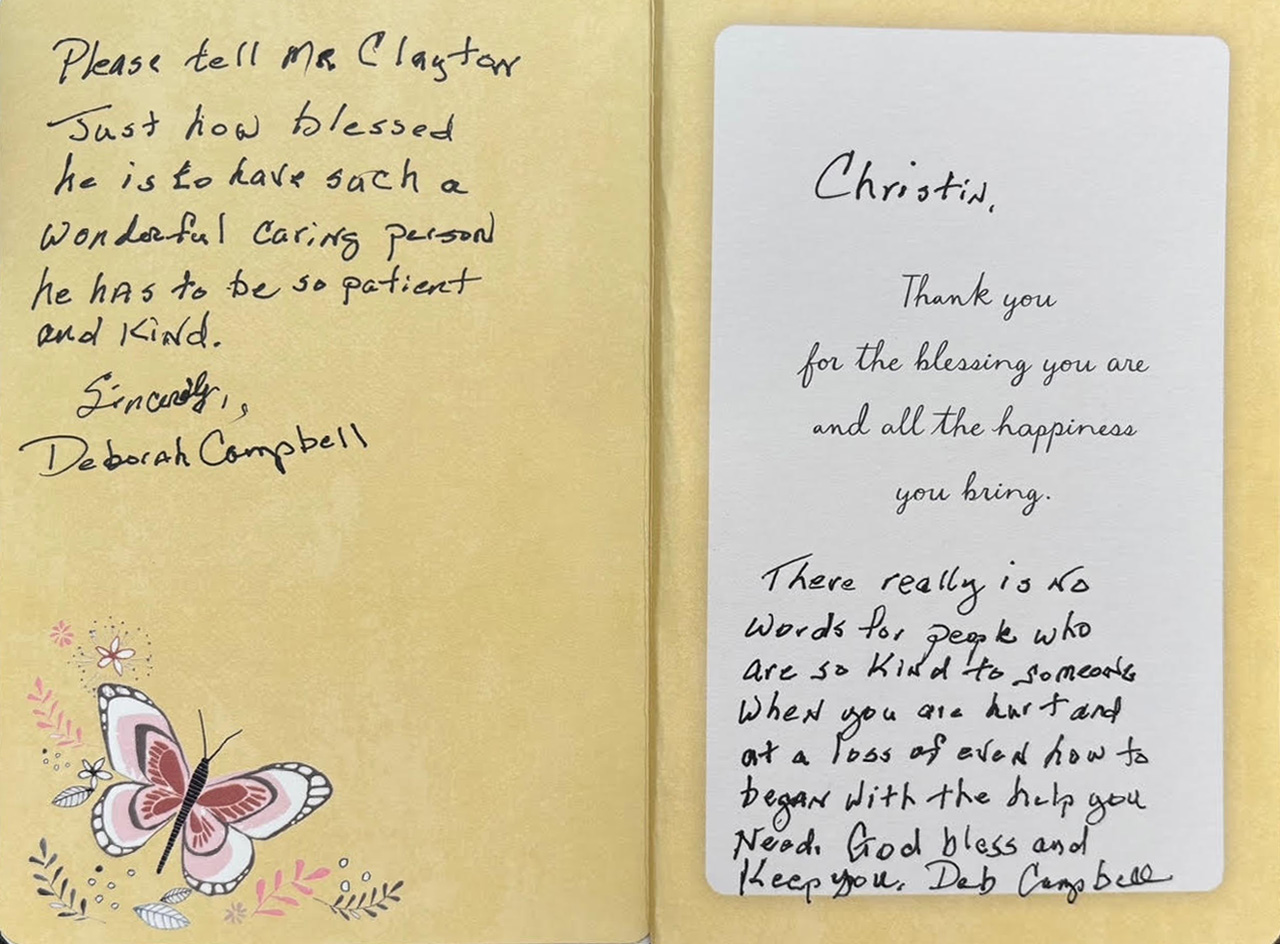 Please tell Mr Clayton
Just how blessed
he is to have such a
wonderful caring person
he has to be so patient
and kind.
Sincerely,,
Deborah Campbell
Christin,
Thank you
for the blessing you are
and all the happiness
you bring.
There really is no
words for people who
are so kind to someone
when you are hurt and
at a loss of even how to
began with the help you
need. God bless and
keep you. Deb Campbell